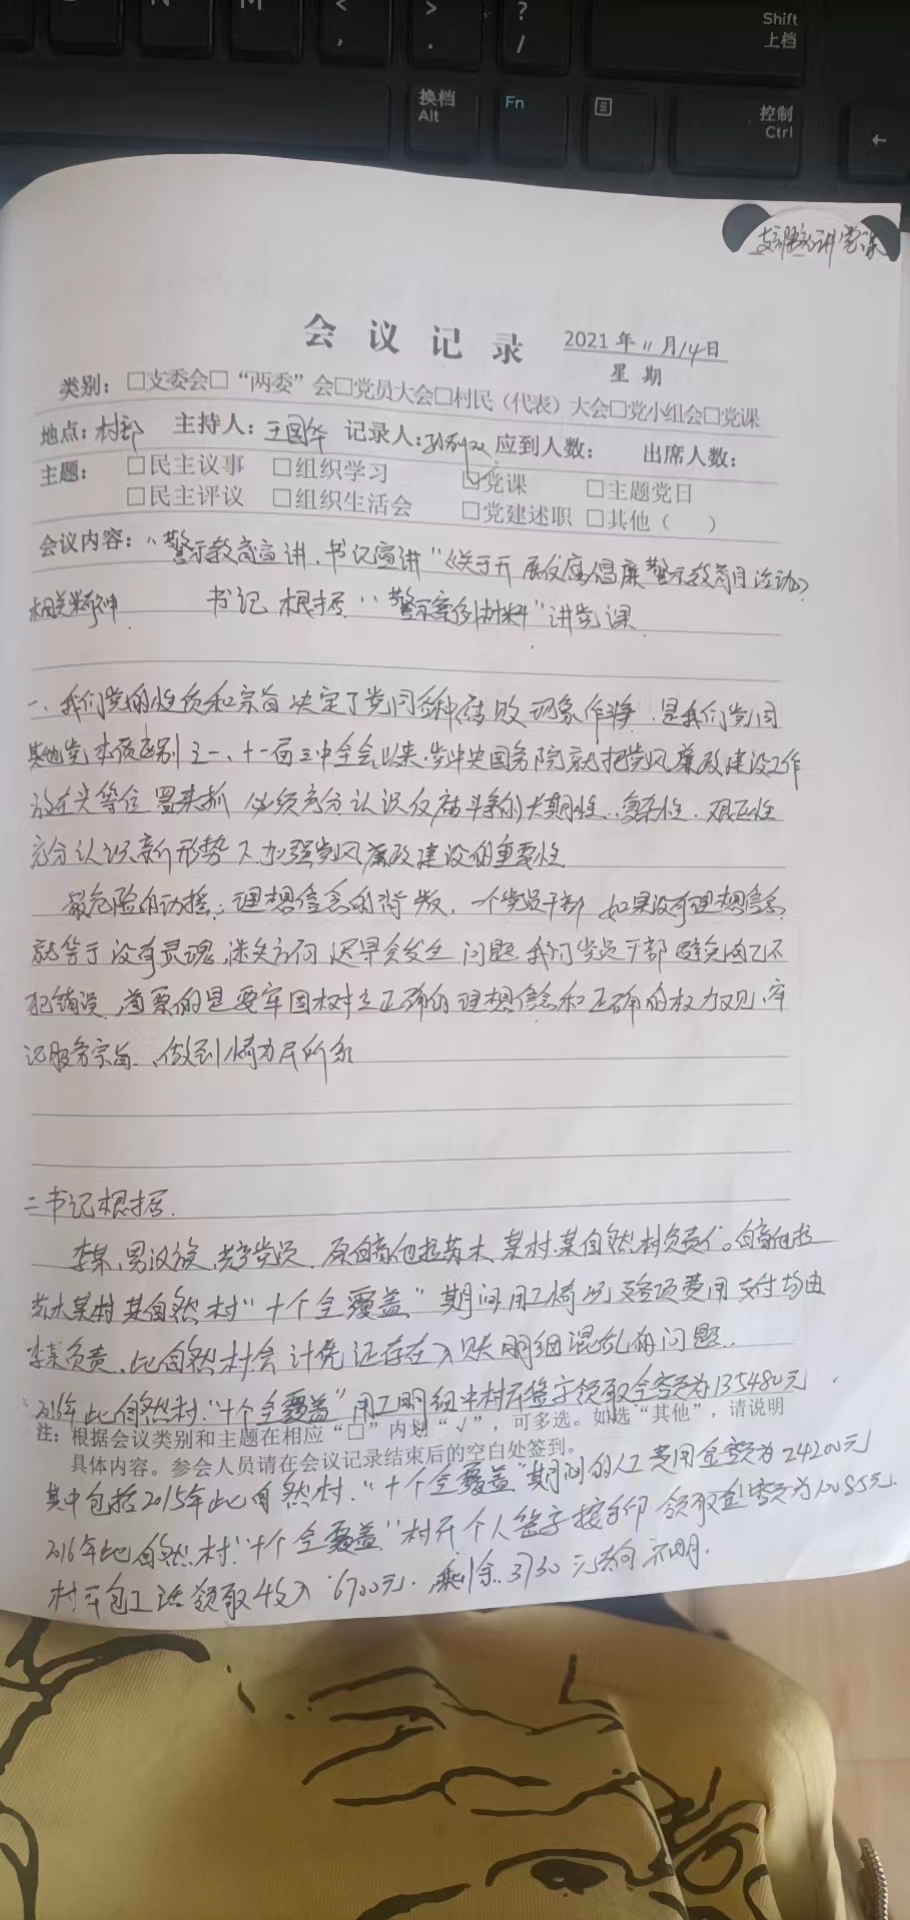 <
,
>
.
?
/
Shift
上档
换档
Alt
Fn
控制
Ctrl
←
支部书记讲党课
会议记录 2021年11月14日
星期
类别：□支委会□“两委”会□党员大会□村民（代表）大会□党小组会□党课
地点：村部 主持人：王国华 记录人： 应到人数： 出席人数：
主题： □民主议事 □组织学习 ☑党课 □主题党日
□民主评议 □组织生活会 □党建述职 □其他（ ）
会议内容：“警示教育宣讲，书记宣讲“《关于开展反腐倡廉警示教育月活动》
相关精神 书记根据“警示案例材料”讲党课
一、我们党的性质和宗旨决定了党同各种腐败现象作斗争，是我们党同
其他党本质区别之一、十一届三中全会以来，党中央国务院就把党风廉政建设工作
放在头等位置来抓 必须充分认识反腐斗争的长期性、复杂性、艰巨性
充分认识新形势下加强党风廉政建设的重要性
最危险的动摇：理想信念的背叛，一个党员干部 如果没有理想信念
就等于没有灵魂，迷失方向 迟早会发生 问题 我们党员干部
犯错误，首要的是要牢固树立正确的理想信念和正确的权力观，牢
记服务宗旨、做到情为民所系
二书记根据.
李某，男汉族，党员，原白音包拉苏木，某村，某自然村负责人。白音包拉
苏木某村某自然村“十个全覆盖”期间用工情况及各项费用支付均由
李某负责，此自然村会计凭证存在入账明细混乱的问题..
2016年此自然村“十个全覆盖”用工明细中村民签字领取金额为135480元
注：根据会议类别和主题在相应“□”内划“√”，可多选。如选“其他”，请说明
具体内容。参会人员请在会议记录结束后的空白处签到。
其中包括2015年此自然村“十个全覆盖”期间的人工费用金额为24200元
2016年此自然村“十个全覆盖”村民个人签字按手印 领取金额为
村民包工 领取收入6700元，剩余3730元去向不明.